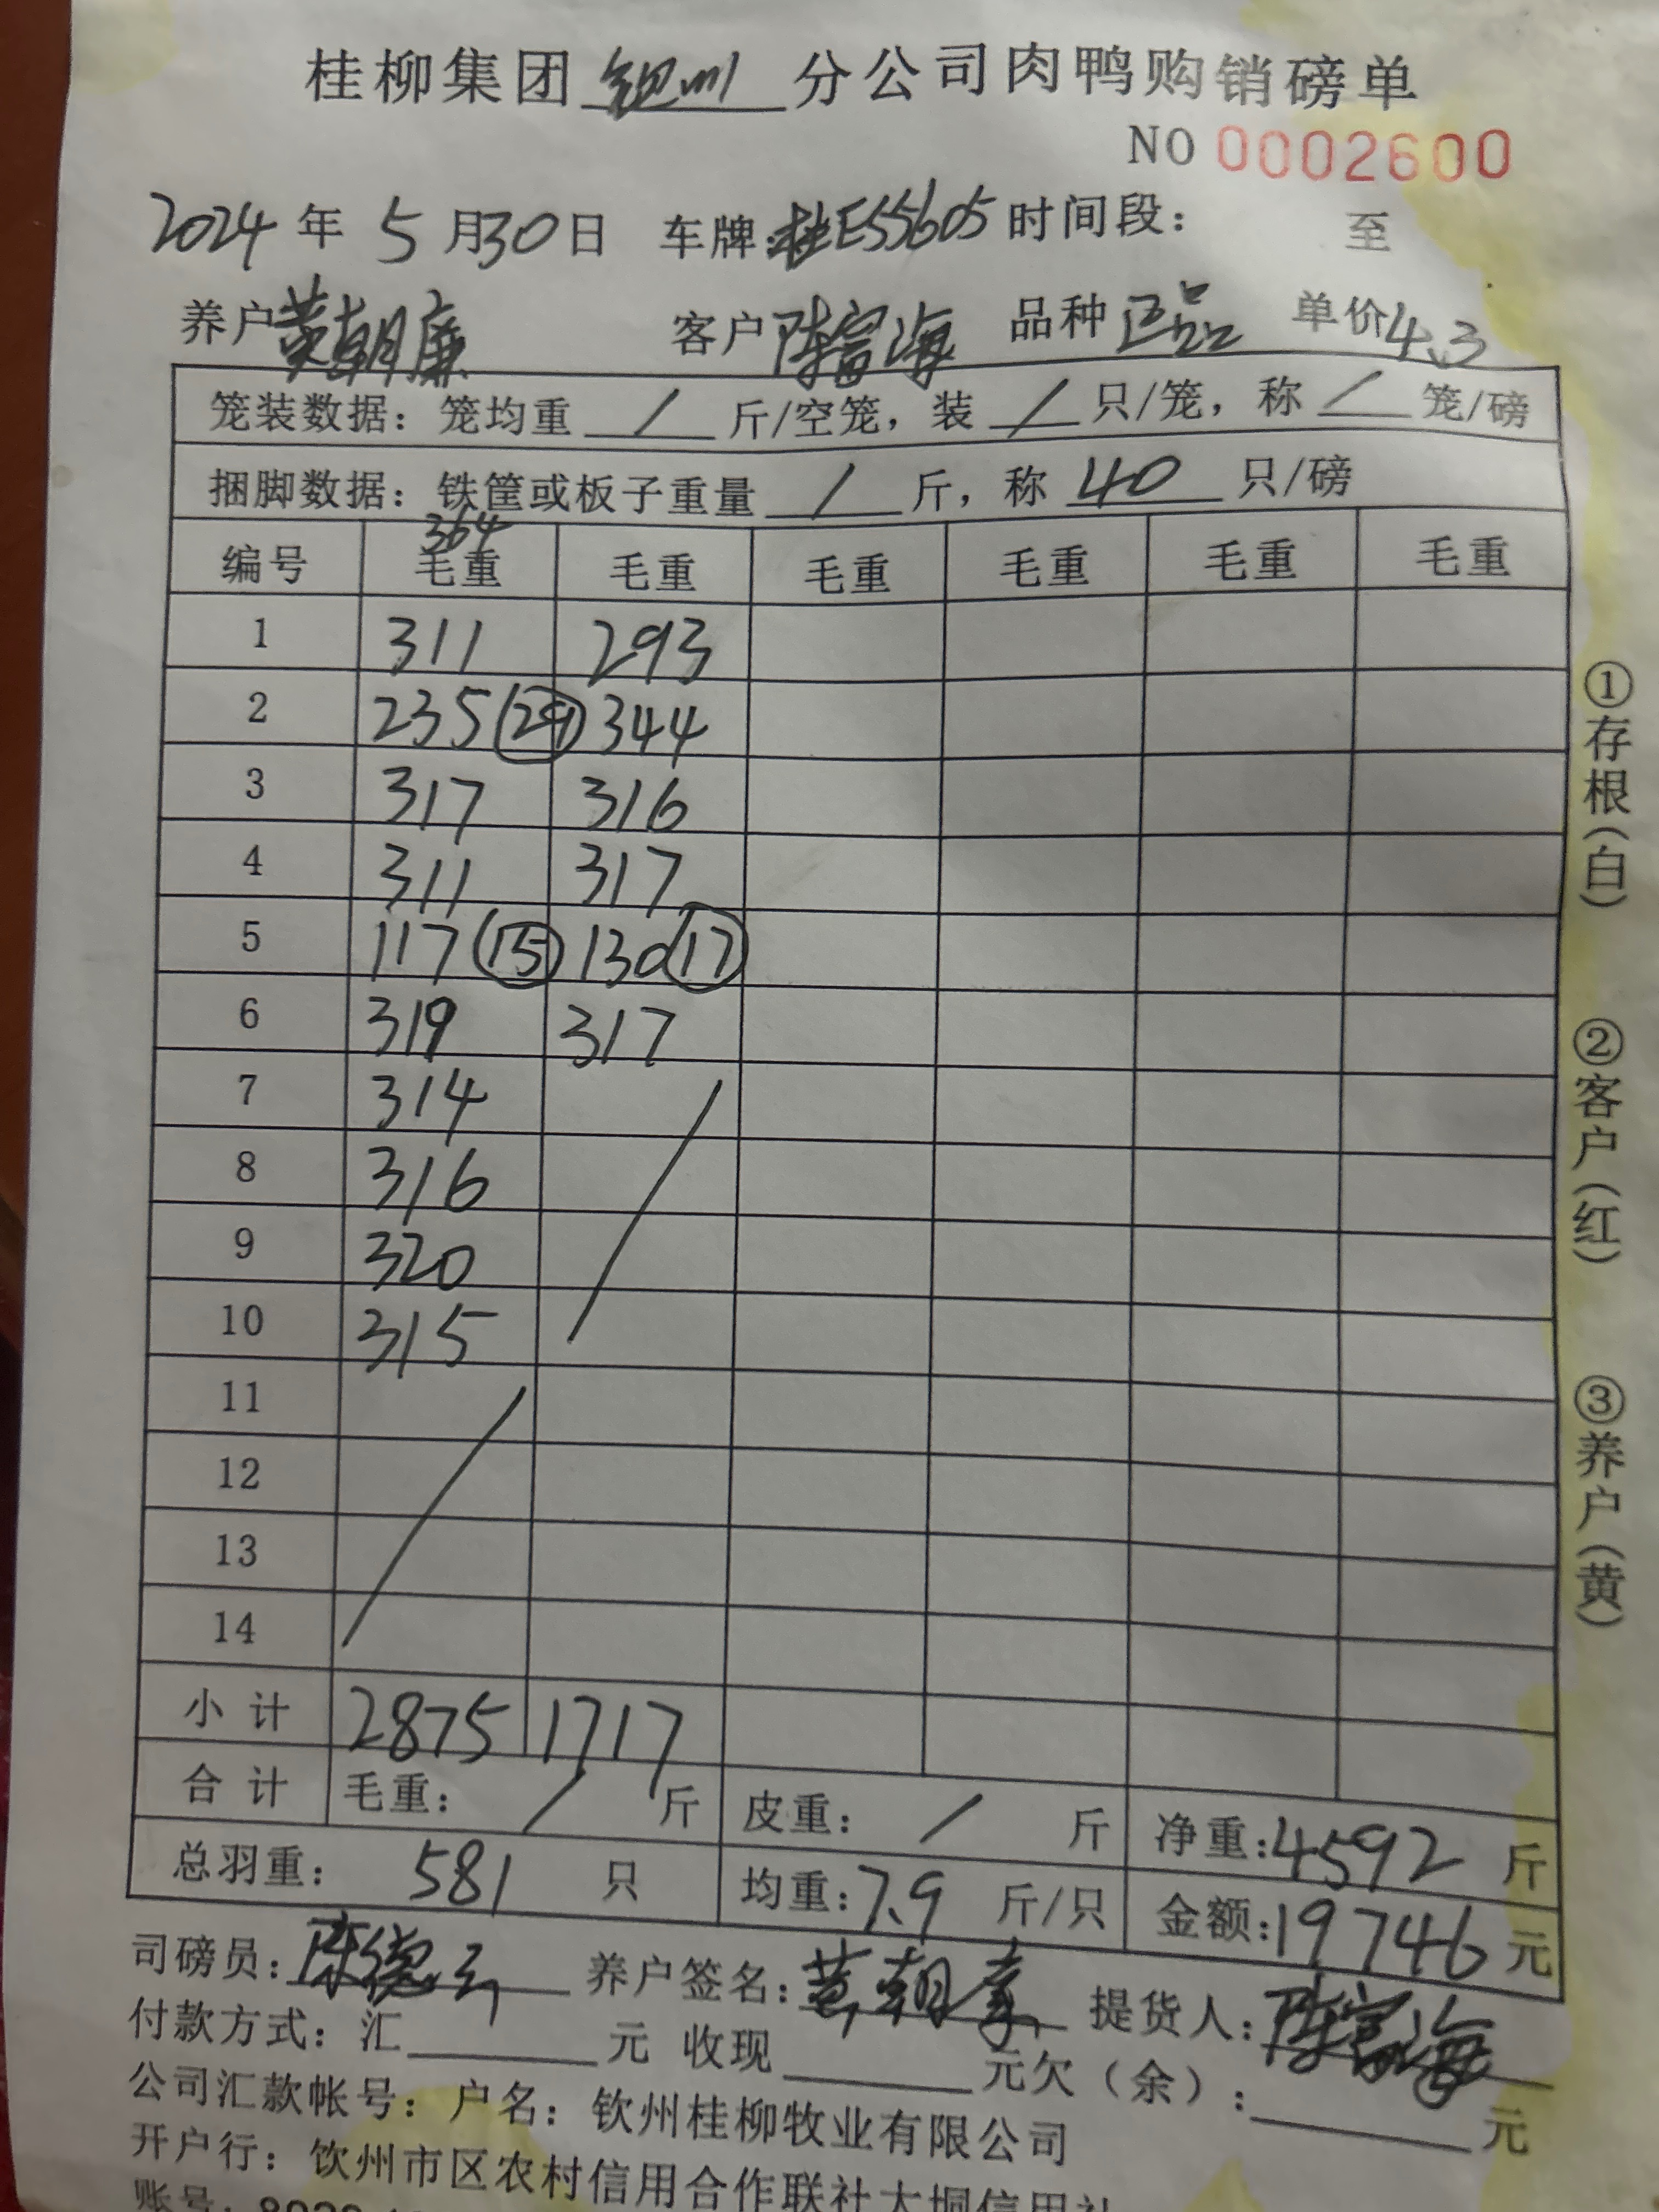 桂柳集团 钦州 分公司肉鸭购销磅单
NO 0002600
2024 年 5 月 30 日 车牌:桂E55605 时间段: 至
养户 黄朝廉 客户 陈富海 品种 正品 单价 4.3
笼装数据:笼均重 / 斤/空笼,装 / 只/笼,称 / 笼/磅
捆脚数据:铁筐或板子重量 / 斤,称 40 只/磅
364
编号 毛重 毛重 毛重 毛重 毛重 毛重
1 311 293
2 235 (29) 344
3 317 316
4 311 317
5 117 (15) 130 (17)
6 319 317
7 314
8 316
9 320
10 315
11
12
13
14
小计 2875 1717
合计 毛重: / 斤 皮重: / 斤 净重:4592 斤
总羽重: 581 只 均重:7.9 斤/只 金额:19746 元
司磅员:陈德云 养户签名:黄朝廉 提货人:陈富海
付款方式:汇 元 收现 元欠(余): 元
公司汇款帐号:户名:钦州桂柳牧业有限公司
开户行:钦州市区农村信用合作联社大垌信用社
账号:
①存根(白) ②客户(红) ③养户(黄)